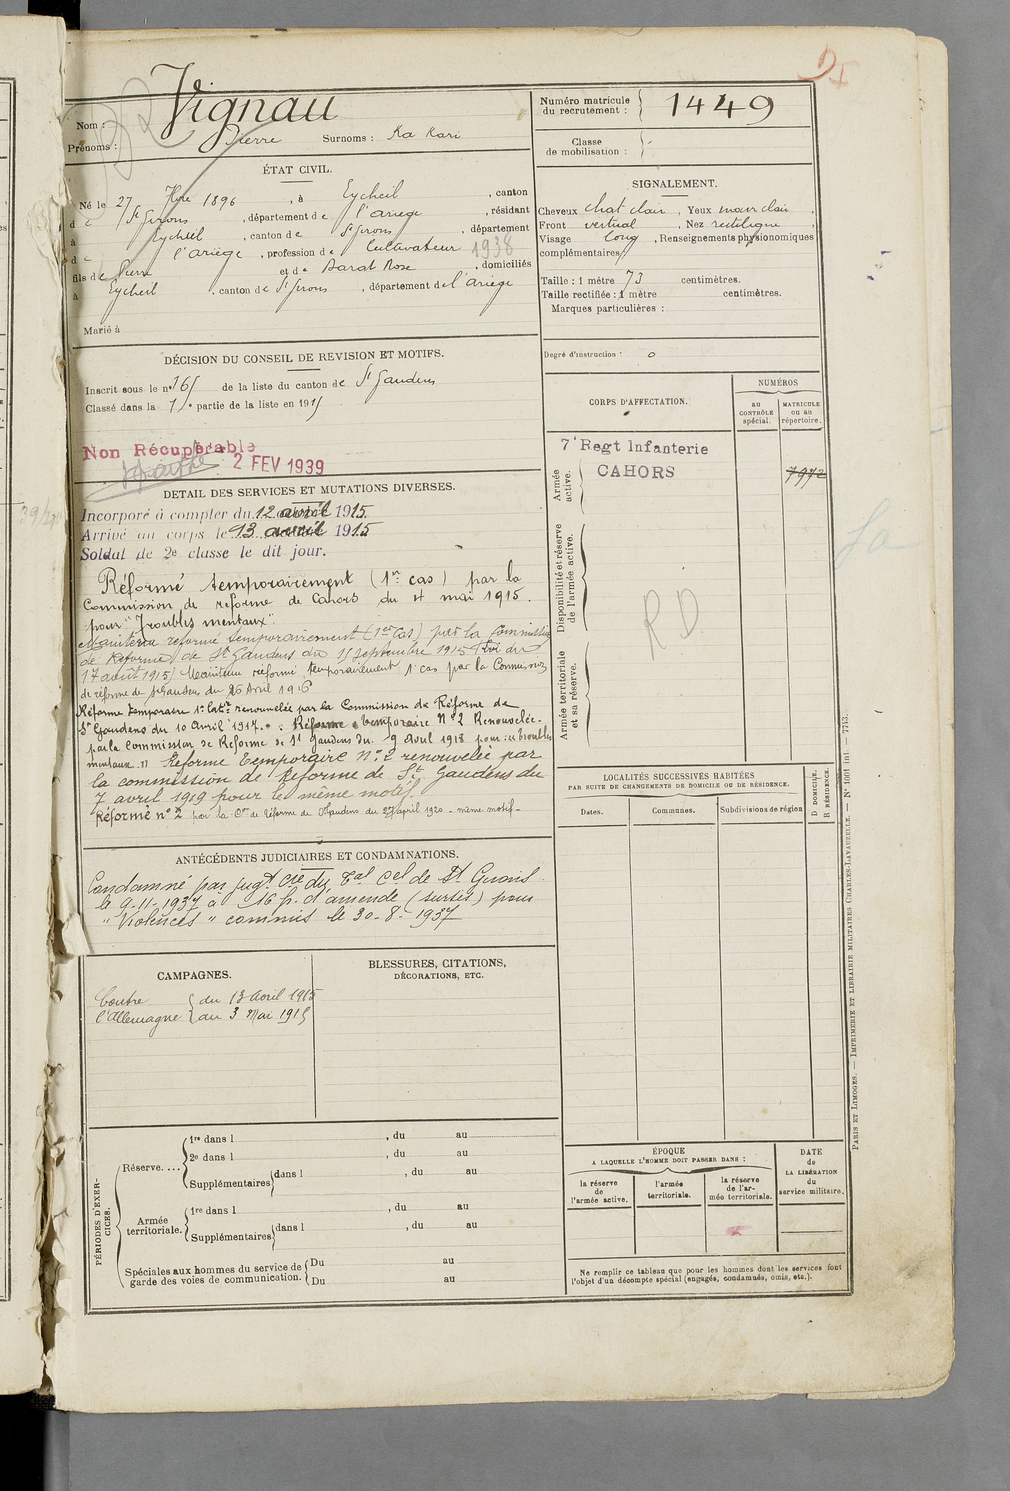 Vignau
Nom :
Prénoms : Pierre Surnoms : Ka Kari
Numéro matricule du recrutement : 1449
Classe de mobilisation :
ÉTAT CIVIL.
Né le 27 1896, à Eycheil, canton
de St Girons, département de l'ariège, résidant
à Eycheil, canton de St Girons, département
de l'ariège, profession de Cultivateur 1938
fils de Pierre et de Barat Rose, domiciliés
à Eycheil, canton de St Girons, département de l'ariège
Marié à
SIGNALEMENT.
Cheveux chat clair, Yeux marr clair,
Front vertical, Nez rectiligne,
Visage long, Renseignements physionomiques
complémentaires :
Taille : 1 mètre 73 centimètres.
Taille rectifiée : 1 mètre centimètres.
Marques particulières :
Degré d'instruction : 0
DÉCISION DU CONSEIL DE REVISION ET MOTIFS.
Inscrit sous le n° 165 de la liste du canton de St Gaudens
Classé dans la 1re partie de la liste en 1915
Non Récupérable
2 FEV 1939
DETAIL DES SERVICES ET MUTATIONS DIVERSES.
Incorporé à compter du 12 avril 1915.
Arrivé au corps le 13 avril 1915
Soldat de 2e classe le dit jour.
Réformé temporairement (1er cas) par la
Commission de reforme de Cahors du 4 mai 1915.
pour "Troubles mentaux".
Maintenu réformé temporairement (1er Cas) par la Commission
de Réforme de St Gaudens du 15 septembre 1915 (Loi du
17 août 1915) Maintenu réformé temporairement 1er cas par la Commission
de réforme de St Gaudens du 26 Avril 1916
Réforme temporaire 1re Catrie renouvelée par la Commission de Réforme de
St Gaudens du 10 Avril 1917. Réforme temporaire N°2 Renouvelée
par la Commission de Réforme de St Gaudens du 9 Avril 1918 pour "troubles
mentaux." Réforme Temporaire N° 2 renouvelée par
la commission de Réforme de St Gaudens du
7 avril 1919 pour le même motif.
Réformé n° 2 par la Con de Réforme de St Gaudens du 27 april 1920 - même motif -
ANTÉCÉDENTS JUDICIAIRES ET CONDAMNATIONS.
Condamné par jugt cre du Tal cel de St Girons
le 9-11-1937 à 16 f. d'amende (sursis) pour
"Violences" commis le 30-8-1937
CAMPAGNES.
Contre l'Allemagne
du 13 avril 1915
au 3 Mai 1915
BLESSURES, CITATIONS,
DÉCORATIONS, ETC.
PÉRIODES D'EXERCICES.
Réserve....
1re dans l , du au
2e dans l , du au
Supplémentaires dans l , du au
Armée territoriale.
1re dans l , du au
Supplémentaires dans l , du au
Spéciales aux hommes du service de garde des voies de communication.
Du au
Du au
CORPS D'AFFECTATION.
NUMÉROS
AU CONTRÔLE spécial.
MATRICULE ou au répertoire.
Armée active.
7e Regt Infanterie
CAHORS
7972
Disponibilité et réserve de l'armée active.
R.D.
Armée territoriale et sa réserve.
LOCALITÉS SUCCESSIVES HABITÉES
PAR SUITE DE CHANGEMENTS DE DOMICILE OU DE RÉSIDENCE.
Dates.
Communes.
Subdivisions de région
D DOMICILE.
R RÉSIDENCE.
ÉPOQUE
A LAQUELLE L'HOMME DOIT PASSER DANS :
la réserve de l'armée active.
l'armée territoriale.
la réserve de l'armée territoriale.
DATE de LA LIBÉRATION du service militaire.
Ne remplir ce tableau que pour les hommes dont les services font
l'objet d'un décompte spécial (engagés, condamnés, omis, etc.).
PARIS ET LIMOGES. — IMPRIMERIE ET LIBRAIRIE MILITAIRES CHARLES-LAVAUZELLE. — N° 1001 int. — 7743.